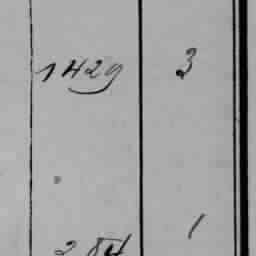 1429 3
284 1